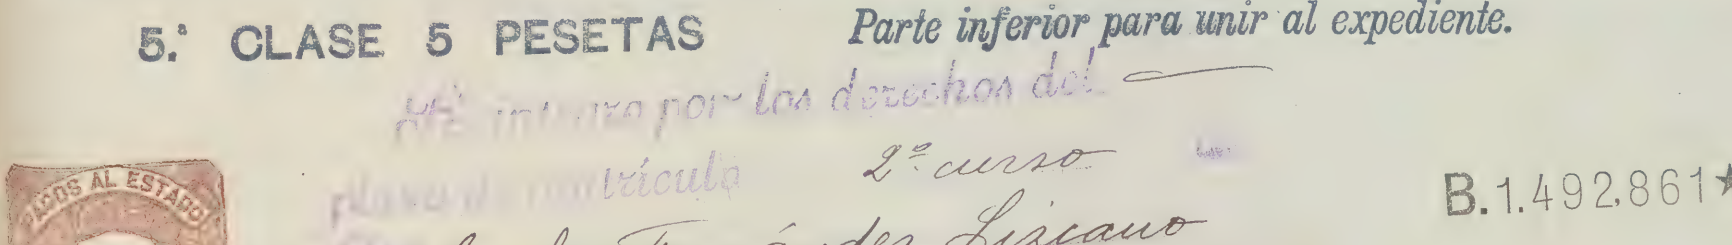 5.ª CLASE 5 PESETAS Parte inferior para unir al expediente.
por los derechos del
matrícula 2º curso
PAGOS AL ESTADO B.1.492,861★
Fernández Lizcano